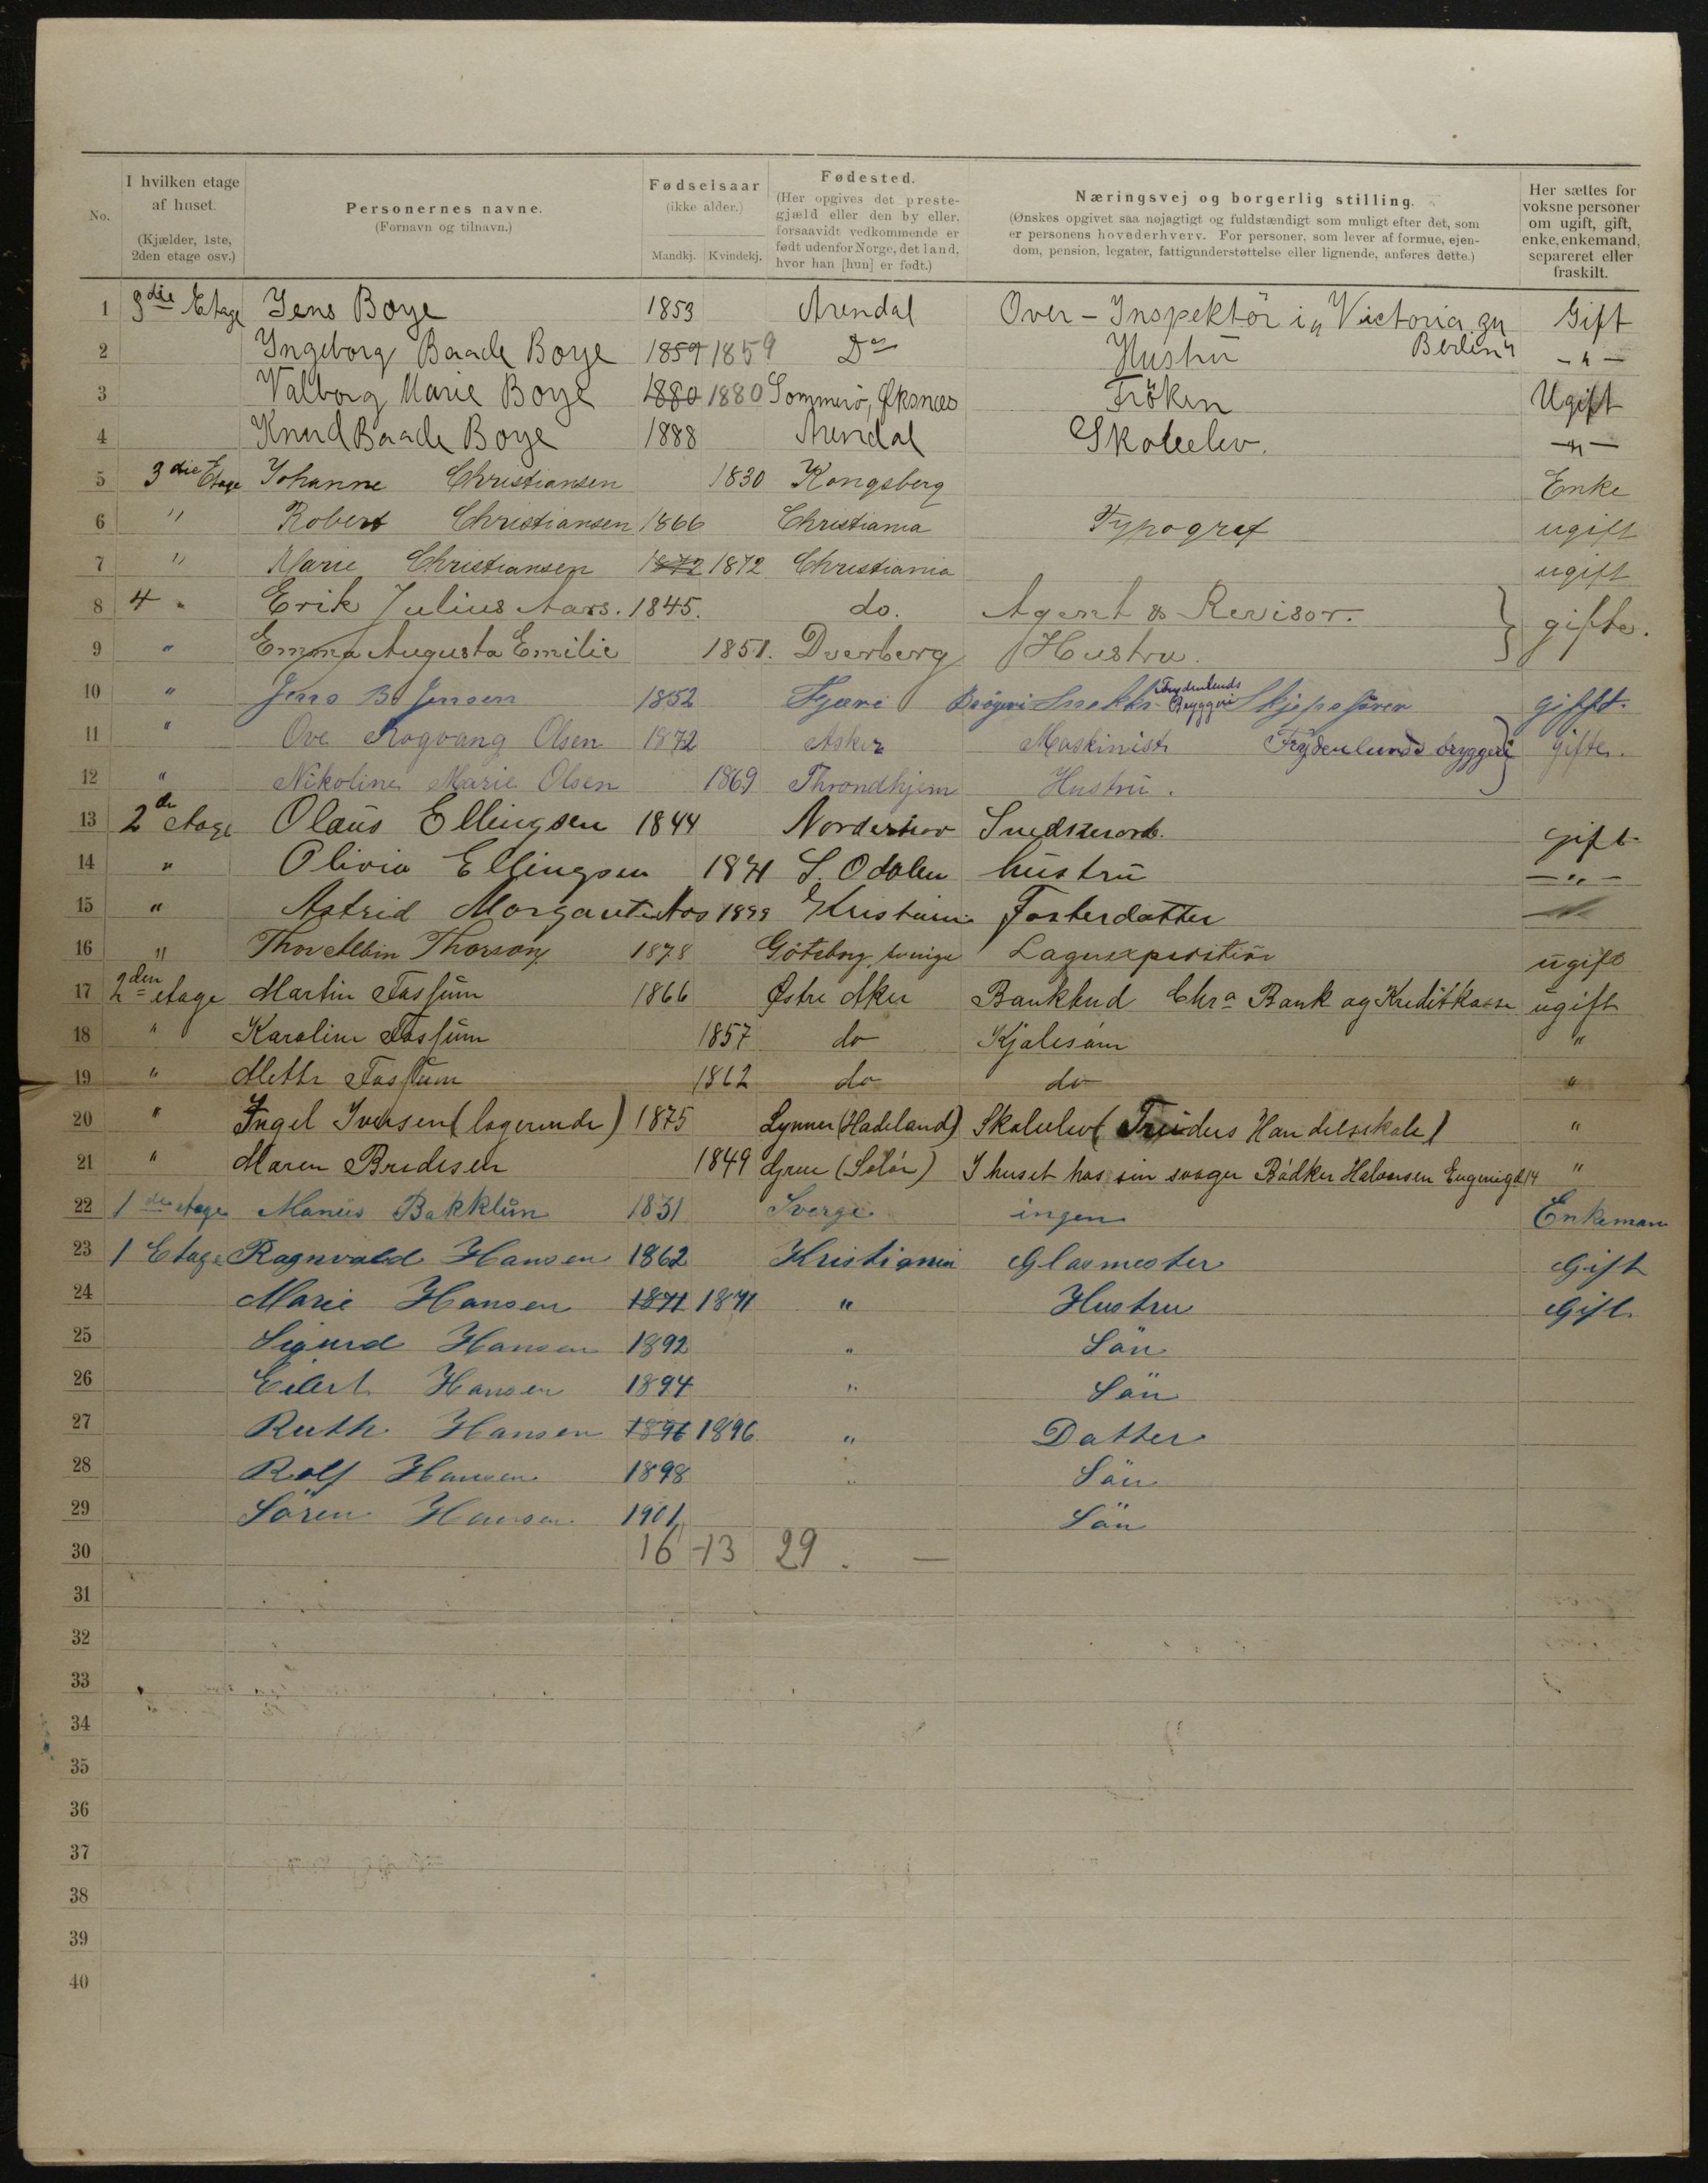 No.
I hvilken etage af huset.
(Kjælder, 1ste, 2den etage osv.)
Personernes navne.
(Fornavn og tilnavn.)
Fødselsaar
(ikke alder.)
Mandkj. Kvindekj.
Fødested.
(Her opgives det prestegjæld eller den by eller, forsaavidt vedkommende er født udenfor Norge, det land, hvor han [hun] er født.)
Næringsvej og borgerlig stilling.
(Ønskes opgivet saa nøjagtigt og fuldstændigt som muligt efter det, som er personens hovederhverv. For personer, som lever af formue, ejendom, pension, legater, fattigunderstøttelse eller lignende, anføres dette.)
Her sættes for voksne personer om ugift, gift, enke, enkemand, separeret eller fraskilt.
1 3die Etage Jens Boye 1853 Arendal Over-Inspektör i „Victoria zu Berlin" Gift
2 Ingeborg Baade Boye 1859 1859 Do Hustru -"-
3 Valborg Marie Boye 1880 1880 Sommerö, Øksnæs Fröken Ugift
4 Knud Baade Boye 1888 Arendal Skoleelev. -"-
5 3die Etage Johanne Christiansen 1830 Kongsberg Enke
6 " Robert Christiansen 1866 Christiania Typograf ugift
7 " Marie Christiansen 1872 1872 Christiania ugift
8 4 " Erik Julius Aars. 1845. do. Agent & Revisor. } gifte.
9 " Emma Augusta Emilie 1851. Dverberg Hustru.
10 " Jens B. Jensen 1852 Fjære Frydenlunds Bryggeri Skipsfører gifft.
11 " Ove Rogvang Olsen 1872 Asker Maskinist Frydenlunds bryggeri } gifte.
12 " Nikoline Marie Olsen 1869 Throndhjem Hustru.
13 2de etage Olaus Ellingsen 1844 Norderhov Snedkerarb. gift
14 " Olivia Ellingsen 1871 S. Odalen hustru -"-
15 " Astrid 1899 Kristiania Fosterdatter
16 " Thor Albin Thorson 1878 Göteborg, sverige Lagerexpeditör ugift
17 2den etage Martin Fossum 1866 Østre Aker Bankbud Chra Bank og Kreditkasse ugift
18 " Karoline Fossum 1857 do Kjolesöm "
19 " Methe Fossum 1862 do do "
20 " Ingel Iversen (logerende) 1875 Lynner (Hadeland) Skoleelev (Treiders Handelsskole) "
21 " Maren Bredesen 1849 Grue (Solör) I huset hos sin svoger Bödker Halvorsen Eugenigd 14 "
22 1ste etage Manius Bakklun 1831 Sverge ingen Enkeman
23 1 Etage Ragnvald Hansen 1862 Kristiania Glasmester Gift
24 Marie Hansen 1871 1871 " Hustru Gift
25 Sigurd Hansen 1892 " Sön
26 Eilert Hansen 1894 " Sön
27 Ruth Hansen 1896 1896 " Datter
28 Rolf Hansen 1898 " Sön
29 Sören Hansen 1901 Sön
30 16 - 13 29. -
31
32
33
34
35
36
37
38
39
40